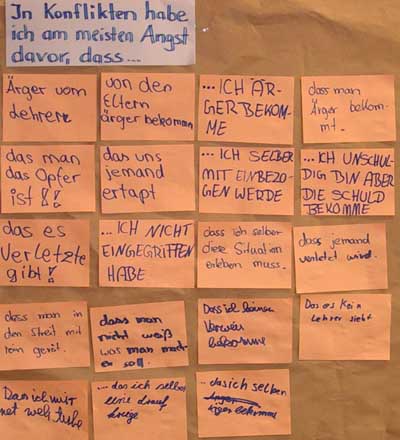 In Konflikten habe
ich am meisten Angst
davor, dass...
Ärger vom
Lehrern
von den
Eltern
ärger bekommen
...ICH ÄR-
GER BEKOM-
ME
dass man
Ärger bekom-
mt.
das man
das Opfer
ist!!
das uns
jemand
ertapt
...ICH SELBER
MIT EINBEZO-
GEN WERDE
...ICH UNSCHUL-
DIG BIN ABER
DIE SCHULD
BEKOMME
das es
Verletzte
gibt!
...ICH NICHT
EINGEGRIFFEN
HABE
dass ich selber
diese Situation
erleben muss.
dass jemand
verletzt wird.
dass man in
den Streit mit
rein gerät.
dass man
nicht weiß
was man mach-
en soll.
Das ich keinen
bekomme
Das es kein
Lehrer sieht
Das ich mir
net weh tuhe
...das ich selber
eins drauf
kriege
...das ich selben
Ärger bekomme